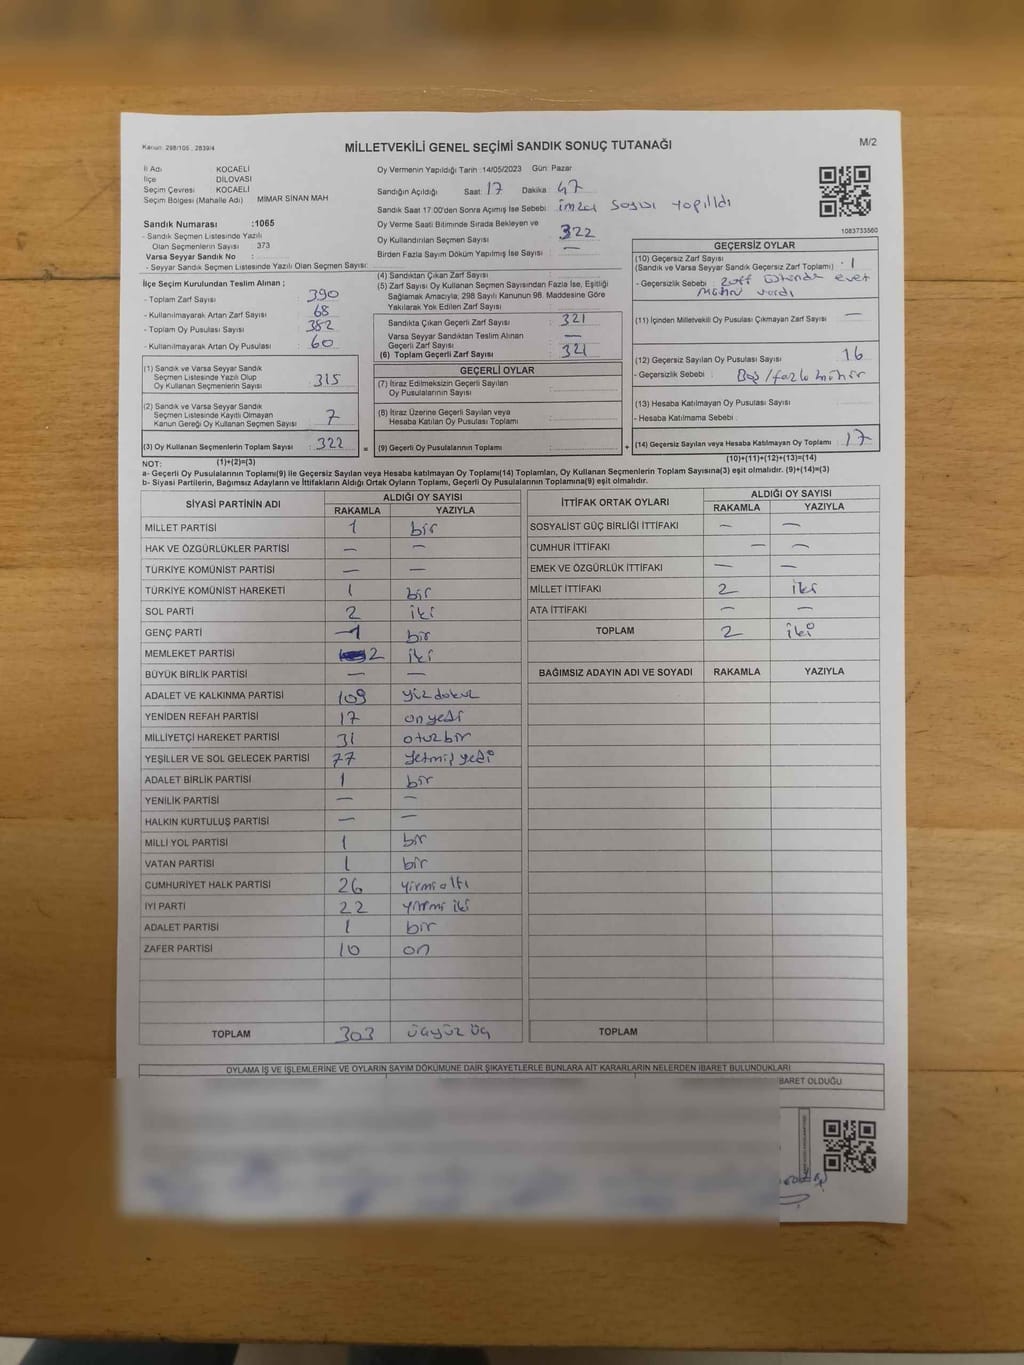 Kanun: 298/105 , 2839/4
MİLLETVEKİLİ GENEL SEÇİMİ SANDIK SONUÇ TUTANAĞI
M/2
İl Adı KOCAELİ
İlçe DİLOVASI
Seçim Çevresi KOCAELİ
Seçim Bölgesi (Mahalle Adı) MİMAR SİNAN MAH
Sandık Numarası :1065
- Sandık Seçmen Listesinde Yazılı
Olan Seçmenlerin Sayısı : 373
Varsa Seyyar Sandık No :
- Seyyar Sandık Seçmen Listesinde Yazılı Olan Seçmen Sayısı:
Oy Vermenin Yapıldığı Tarih :14/05/2023 Gün: Pazar
Sandığın Açıldığı Saat: 17 Dakika: 47
Sandık Saat 17:00'den Sonra Açımış İse Sebebi: imza sayısı yapıldı
Oy Verme Saati Bitiminde Sırada Bekleyen ve
Oy Kullandırılan Seçmen Sayısı : 322
Birden Fazla Sayım Döküm Yapılmış İse Sayısı : —
1083733560
İlçe Seçim Kurulundan Teslim Alınan ;
- Toplam Zarf Sayısı : 390
- Kullanılmayarak Artan Zarf Sayısı : 68
- Toplam Oy Pusulası Sayısı : 382
- Kullanılmayarak Artan Oy Pusulası : 60
(1) Sandık ve Varsa Seyyar Sandık
Seçmen Listesinde Yazılı Olup
Oy Kullanan Seçmenlerin Sayısı : 315
(2) Sandık ve Varsa Seyyar Sandık
Seçmen Listesinde Kayıtlı Olmayan
Kanun Gereği Oy Kullanan Seçmen Sayısı : 7
(3) Oy Kullanan Seçmenlerin Toplam Sayısı : 322
(1)+(2)=(3)
(4) Sandıktan Çıkan Zarf Sayısı :
(5) Zarf Sayısı Oy Kullanan Seçmen Sayısından Fazla İse, Eşitliği
Sağlamak Amacıyla; 298 Sayılı Kanunun 98. Maddesine Göre
Yakılarak Yok Edilen Zarf Sayısı :
Sandıkta Çıkan Geçerli Zarf Sayısı : 321
Varsa Seyyar Sandıktan Teslim Alınan
Geçerli Zarf Sayısı : —
(6) Toplam Geçerli Zarf Sayısı : 321
GEÇERLİ OYLAR
(7) İtiraz Edilmeksizin Geçerli Sayılan
Oy Pusulalarının Sayısı :
(8) İtiraz Üzerine Geçerli Sayılan veya
Hesaba Katılan Oy Pusulası Toplamı :
= (9) Geçerli Oy Pusulalarının Toplamı :
GEÇERSİZ OYLAR
(10) Geçersiz Zarf Sayısı
(Sandık ve Varsa Seyyar Sandık Geçersiz Zarf Toplamı) : 1
- Geçersizlik Sebebi : zarf üstünde evet
mührü vardı
(11) İçinden Milletvekili Oy Pusulası Çıkmayan Zarf Sayısı : —
(12) Geçersiz Sayılan Oy Pusulası Sayısı : 16
- Geçersizlik Sebebi : Boş/fazla mühür
(13) Hesaba Katılmayan Oy Pusulası Sayısı :
- Hesaba Katılmama Sebebi :
+ (14) Geçersiz Sayılan veya Hesaba Katılmayan Oy Toplamı : 17
(10)+(11)+(12)+(13)=(14)
NOT:
a- Geçerli Oy Pusulalarının Toplamı(9) ile Geçersiz Sayılan veya Hesaba katılmayan Oy Toplamı(14) Toplamları, Oy Kullanan Seçmenlerin Toplam Sayısına(3) eşit olmalıdır. (9)+(14)=(3)
b- Siyasi Partilerin, Bağımsız Adayların ve İttifakların Aldığı Ortak Oyların Toplamı, Geçerli Oy Pusulalarının Toplamına(9) eşit olmalıdır.
SİYASİ PARTİNİN ADI ALDIĞI OY SAYISI
RAKAMLA YAZIYLA
MİLLET PARTİSİ 1 bir
HAK VE ÖZGÜRLÜKLER PARTİSİ — —
TÜRKİYE KOMÜNİST PARTİSİ — —
TÜRKİYE KOMÜNİST HAREKETİ 1 bir
SOL PARTİ 2 iki
GENÇ PARTİ 1 bir
MEMLEKET PARTİSİ 2 iki
BÜYÜK BİRLİK PARTİSİ — —
ADALET VE KALKINMA PARTİSİ 109 yüz dokuz
YENİDEN REFAH PARTİSİ 17 on yedi
MİLLİYETÇİ HAREKET PARTİSİ 31 otuz bir
YEŞİLLER VE SOL GELECEK PARTİSİ 77 yetmiş yedi
ADALET BİRLİK PARTİSİ 1 bir
YENİLİK PARTİSİ — —
HALKIN KURTULUŞ PARTİSİ — —
MİLLİ YOL PARTİSİ 1 bir
VATAN PARTİSİ 1 bir
CUMHURİYET HALK PARTİSİ 26 yirmi altı
İYİ PARTİ 22 yirmi iki
ADALET PARTİSİ 1 bir
ZAFER PARTİSİ 10 on
TOPLAM 303 üçyüz üç
İTTİFAK ORTAK OYLARI ALDIĞI OY SAYISI
RAKAMLA YAZIYLA
SOSYALİST GÜÇ BİRLİĞİ İTTİFAKI — —
CUMHUR İTTİFAKI — —
EMEK VE ÖZGÜRLÜK İTTİFAKI — —
MİLLET İTTİFAKI 2 iki
ATA İTTİFAKI — —
TOPLAM 2 iki
BAĞIMSIZ ADAYIN ADI VE SOYADI RAKAMLA YAZIYLA
TOPLAM
OYLAMA İŞ VE İŞLEMLERİNE VE OYLARIN SAYIM DÖKÜMÜNE DAİR ŞİKAYETLERLE BUNLARA AİT KARARLARIN NELERDEN İBARET BULUNDUKLARI
BARET OLDUĞU